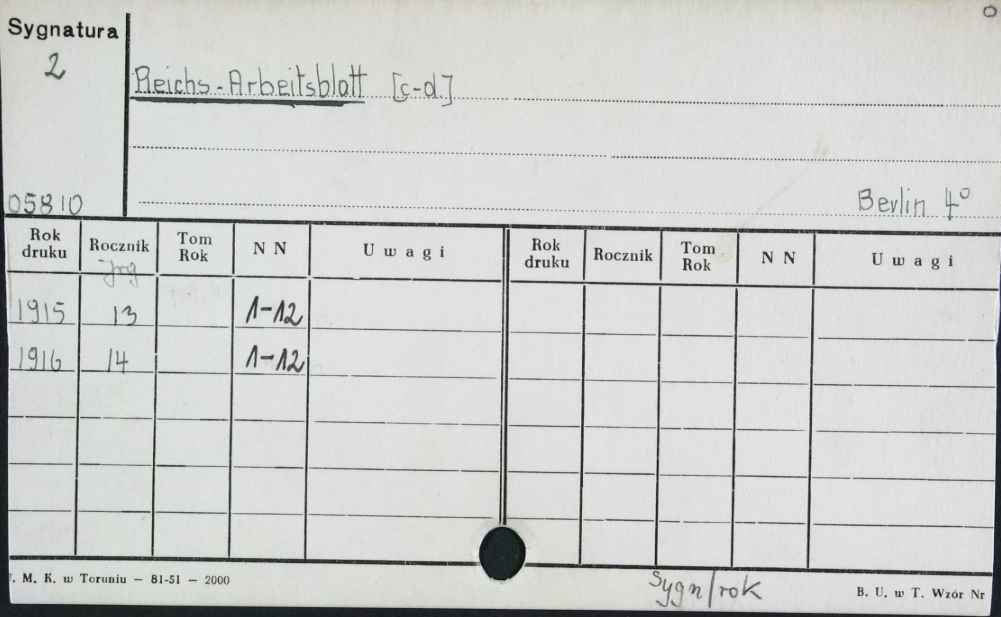 Sygnatura
2
Reichs-Arbeitsblatt [c-d.]
05810
Berlin 4°
Rok druku Rocznik Tom Rok N N Uwagi Rok druku Rocznik Tom Rok N N Uwagi
Jrg
1915 13 1-12
1916 14 1-12
. M. K. w Toruniu – 81-51 – 2000
Sygn/rok
B. U. w T. Wzór Nr